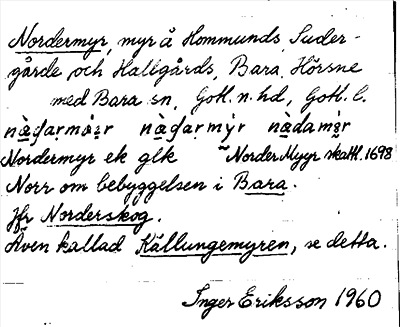 Nordermyr, myr å Hommunds, Suder-
gårde och Hallgårds, Bara, Hörsne
med Bara sn, Gotl. n. hd, Gotl. l.
Nordermyr ek glk ~Norder Myyr skattl. 1698
Norr om bebyggelsen i Bara.
Jfr Norderskog.
Även kallad Källungemyren, se detta.
Inger Eriksson 1960